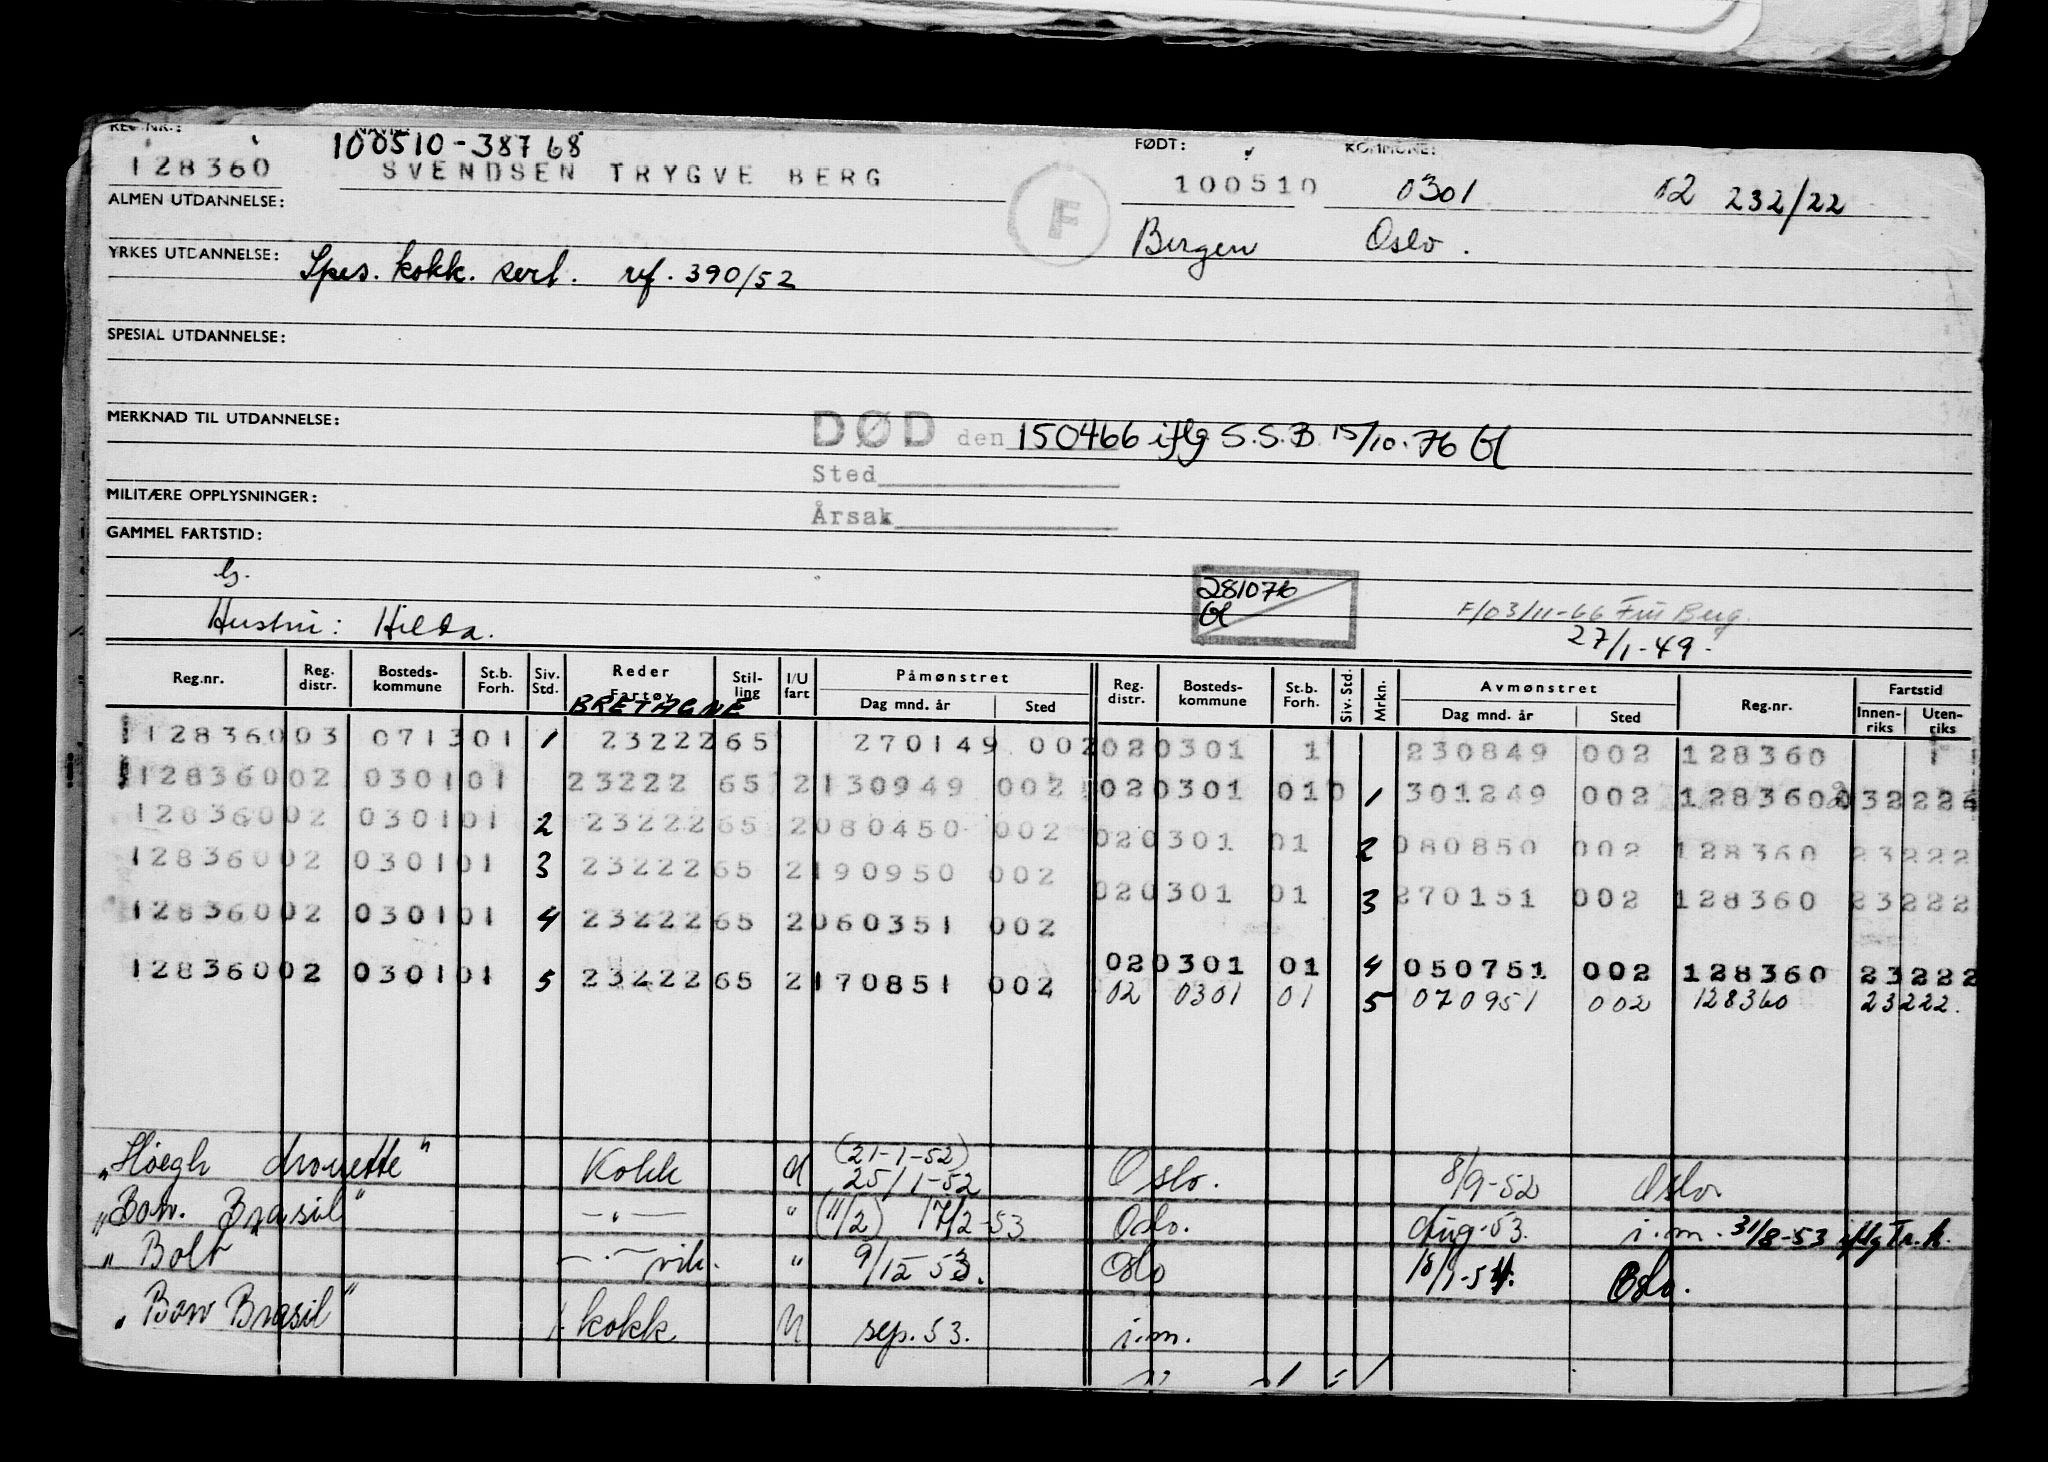 REG.NR.: NAVN: 100510-38768 FØDT: KOMMUNE:
128360 SVENDSEN TRYGVE BERG F 100510 0301 02 232/22
ALMEN UTDANNELSE: Bergen Oslo.
YRKES UTDANNELSE: Spes. kokk. sert. ref. 390/52
SPESIAL UTDANNELSE:
MERKNAD TIL UTDANNELSE: DØD den 150466 iflg S.S.B 15/10-76 Gl
Sted
MILITÆRE OPPLYSNINGER: Årsak
GAMMEL FARTSTID:
G.
281076
Gl
F/03/11-66 Berg.
Hustru: Hilda. 27/1-49.
Reg.nr. Reg. distr. Bosteds-kommune St.b. Forh. Siv. Std. Reder Fartøy Stil-ling I/U fart Påmønstret Dag mnd. år Sted Reg. distr. Bosteds-kommune St.b. Forh. Siv. Std. Mrkn. Avmønstret Dag mnd. år Sted Reg.nr. Fartstid Innen-riks Uten-riks
BRETAGNE
128360 03 0713 01 1 23222 65 270149 002 02 0301 1 230849 002 128360 1 1
128360 02 0301 01 23222 65 2 130949 002 02 0301 010 1 301249 002 128360
128360 02 0301 01 2 23222 65 2 080450 002 02 0301 01 2 080850 002 128360 23222
128360 02 0301 01 3 23222 65 2 190950 002 02 0301 01 3 270151 002 128360 23222
128360 02 0301 01 4 23222 65 2 060351 002 02 0301 01 4 050751 002 128360 23222
128360 02 0301 01 5 23222 65 2 170851 002 02 0301 01 5 070951 002 128360 23222.
"Höegh " Kokk U (21-1-52) 25/1-52 Oslo. 8/9-52 Oslo
"Bow. Brasil" -"- " (11/2) 17/2-53 Oslo. Aug-53. i.m. 31/8-53 iflg Tr.k.
"Bolt" -"- vik. " 9/12-53. Oslo 18/1-54. Oslo.
"Bow Brasil" kokk U sep. 53. i.m.